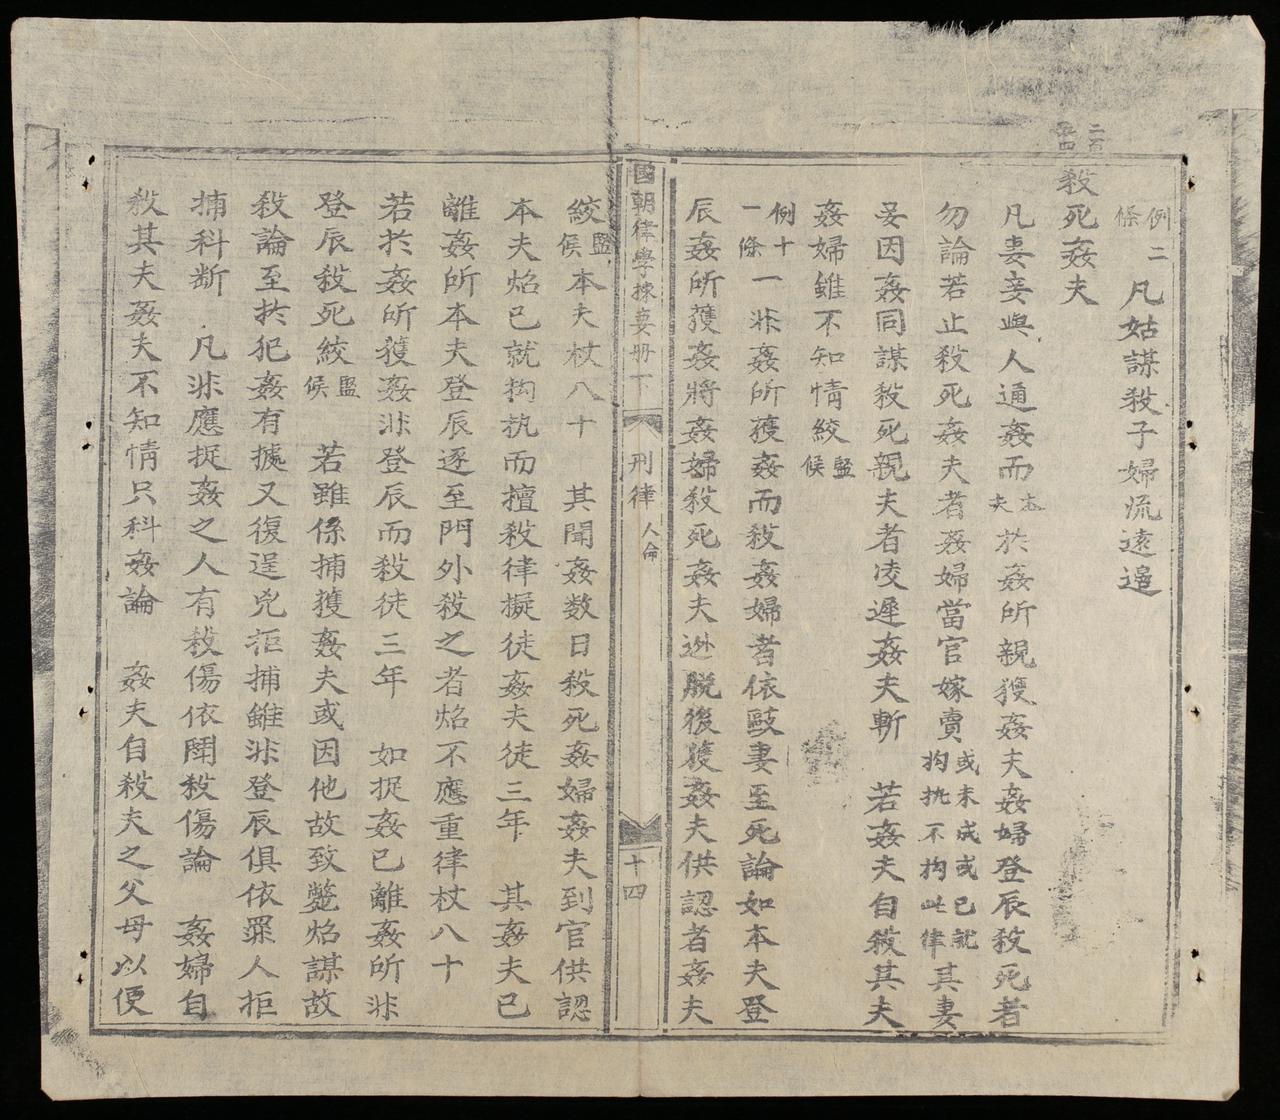 二百
五四
例二條 凡姑謀殺子婦流遠邊
殺死姦夫
凡妻妾與人通姦而本夫於姦所親獲姦夫姦婦登辰殺死者
勿論若止殺死姦夫者姦婦當官嫁賣或未成或已就拘执不拘此律其妻
妾因姦同謀殺死親夫者凌遲姦夫斬 若姦夫自殺其夫
姦婦雖不知情絞監候
例十一條 一非姦所獲姦而殺姦婦者依毆妻至死論如本夫登
辰姦所獲姦將姦婦殺死姦夫逃脫後獲姦夫供認者姦夫
國朝律學揀要册下 刑律 人命 十四
絞監候本夫杖八十 其聞姦数日殺死姦婦姦夫到官供認
本夫焰已就拘执而擅殺律擬徒姦夫徒三年 其姦夫已
離姦所本夫登辰逐至門外殺之者焰不應重律杖八十
若於姦所獲姦非登辰而殺徒三年 如捉姦已離姦所非
登辰殺死絞監候 若雖係捕獲姦夫或因他故致斃焰謀故
殺論至於犯姦有據又復逞兇拒捕雖非登辰俱依罪人拒
捕科断 凡非應捉姦之人有殺傷依鬪殺傷論 姦婦自
殺其夫姦夫不知情只科姦論 姦夫自殺夫之父母以便